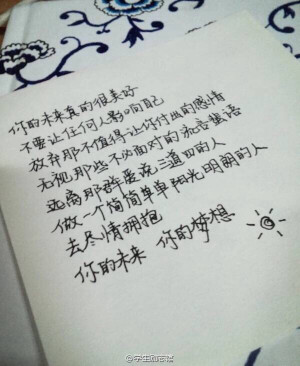 你的未来真的很美好
不要让任何人影响自己
放弃那不值得让你付出的感情
无视那些不必面对的流言蜚语
远离那群爱说三道四的人
做一个简简单单阳光明朗的人
去尽情拥抱
你的未来 你的梦想
@学生励志君